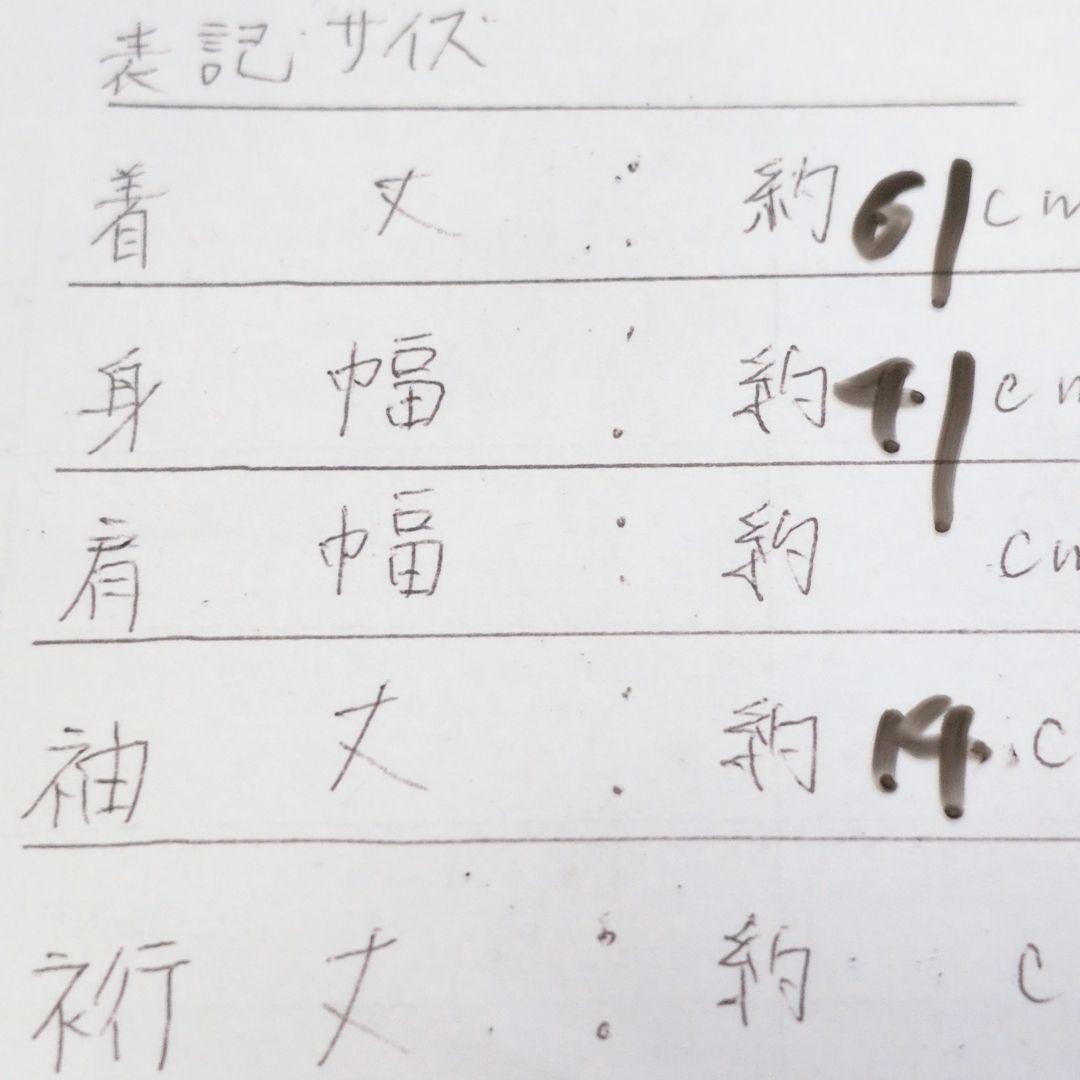 表記サイズ
着丈:約61cm
身幅:約41cm
肩幅:約 cm
袖丈:約14.c
裄丈:約 c